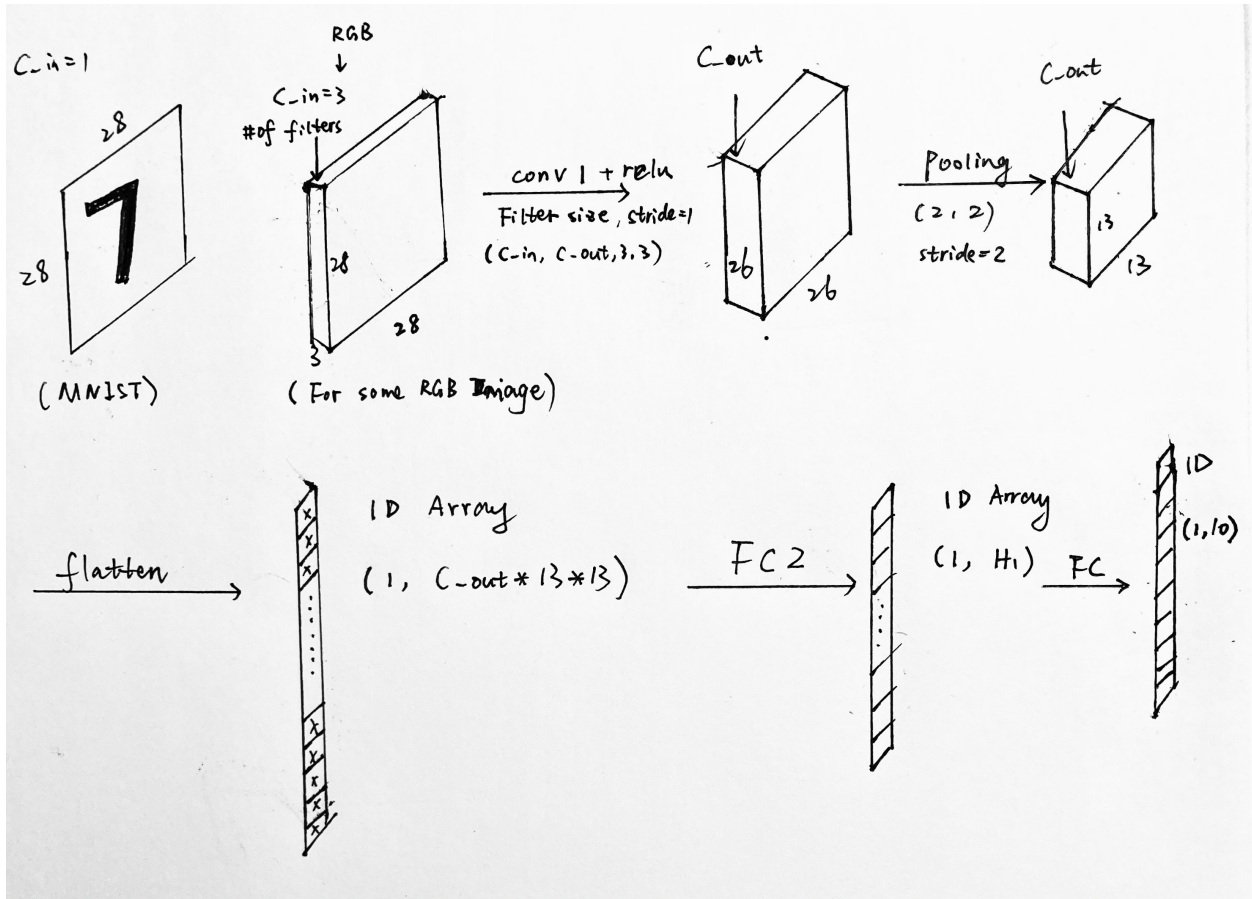 C_in=1
28
28
(MNIST)
RGB
C_in=3
#of filters
28
28
3
(For some RGB Image)
conv 1 + relu
Filter size, stride=1
(C-in, C-out, 3, 3)
C_out
26
26
Pooling
(2, 2)
stride=2
C_out
13
13
flatten
x
x
x
x
x
x
x
x
1D Array
(1, C_out * 13 * 13)
FC2
1D Array
(1, H1)
FC
1D
(1,10)